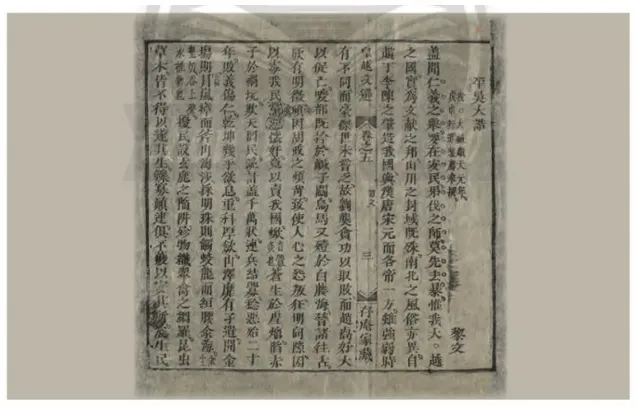 平吳大誥
黎文
蓋聞仁義之舉要在安民弔伐之師莫先去暴惟我大越
之國實為文献之邦山川之封域既殊南北之風俗亦異自
趙丁李陳之肇造我國與漢唐宋元而各帝一方雖強弱時
皇越文選 卷之五 誥文 三 存庵家藏
有不同而豪傑世未嘗乏故劉龔貪功以取敗而趙卨好大
以促亡唆都既擒於鹹子關烏馬又殪於白藤海晉諸往古
厥有明徵頃因胡政之煩苛致使人心之怨叛狂明伺隙因
以毒我民奸竟以賣我國焮蒼生於虐焰陷赤
子於禍坑欺天罔民詭計蓋千萬狀連兵結釁稔惡殆二十
年敗義傷仁乾坤幾乎欲息重科厚歛山澤靡有孑遺開金
場則冒嵐瘴而斧山淘沙採明珠則觸蛟龍而絙腰汆海
擾民設玄鹿之陷阱殄物織翠禽之網羅昆虫
草木皆不得以遂其生鰥寡顛連俱不獲以安其所浚生民